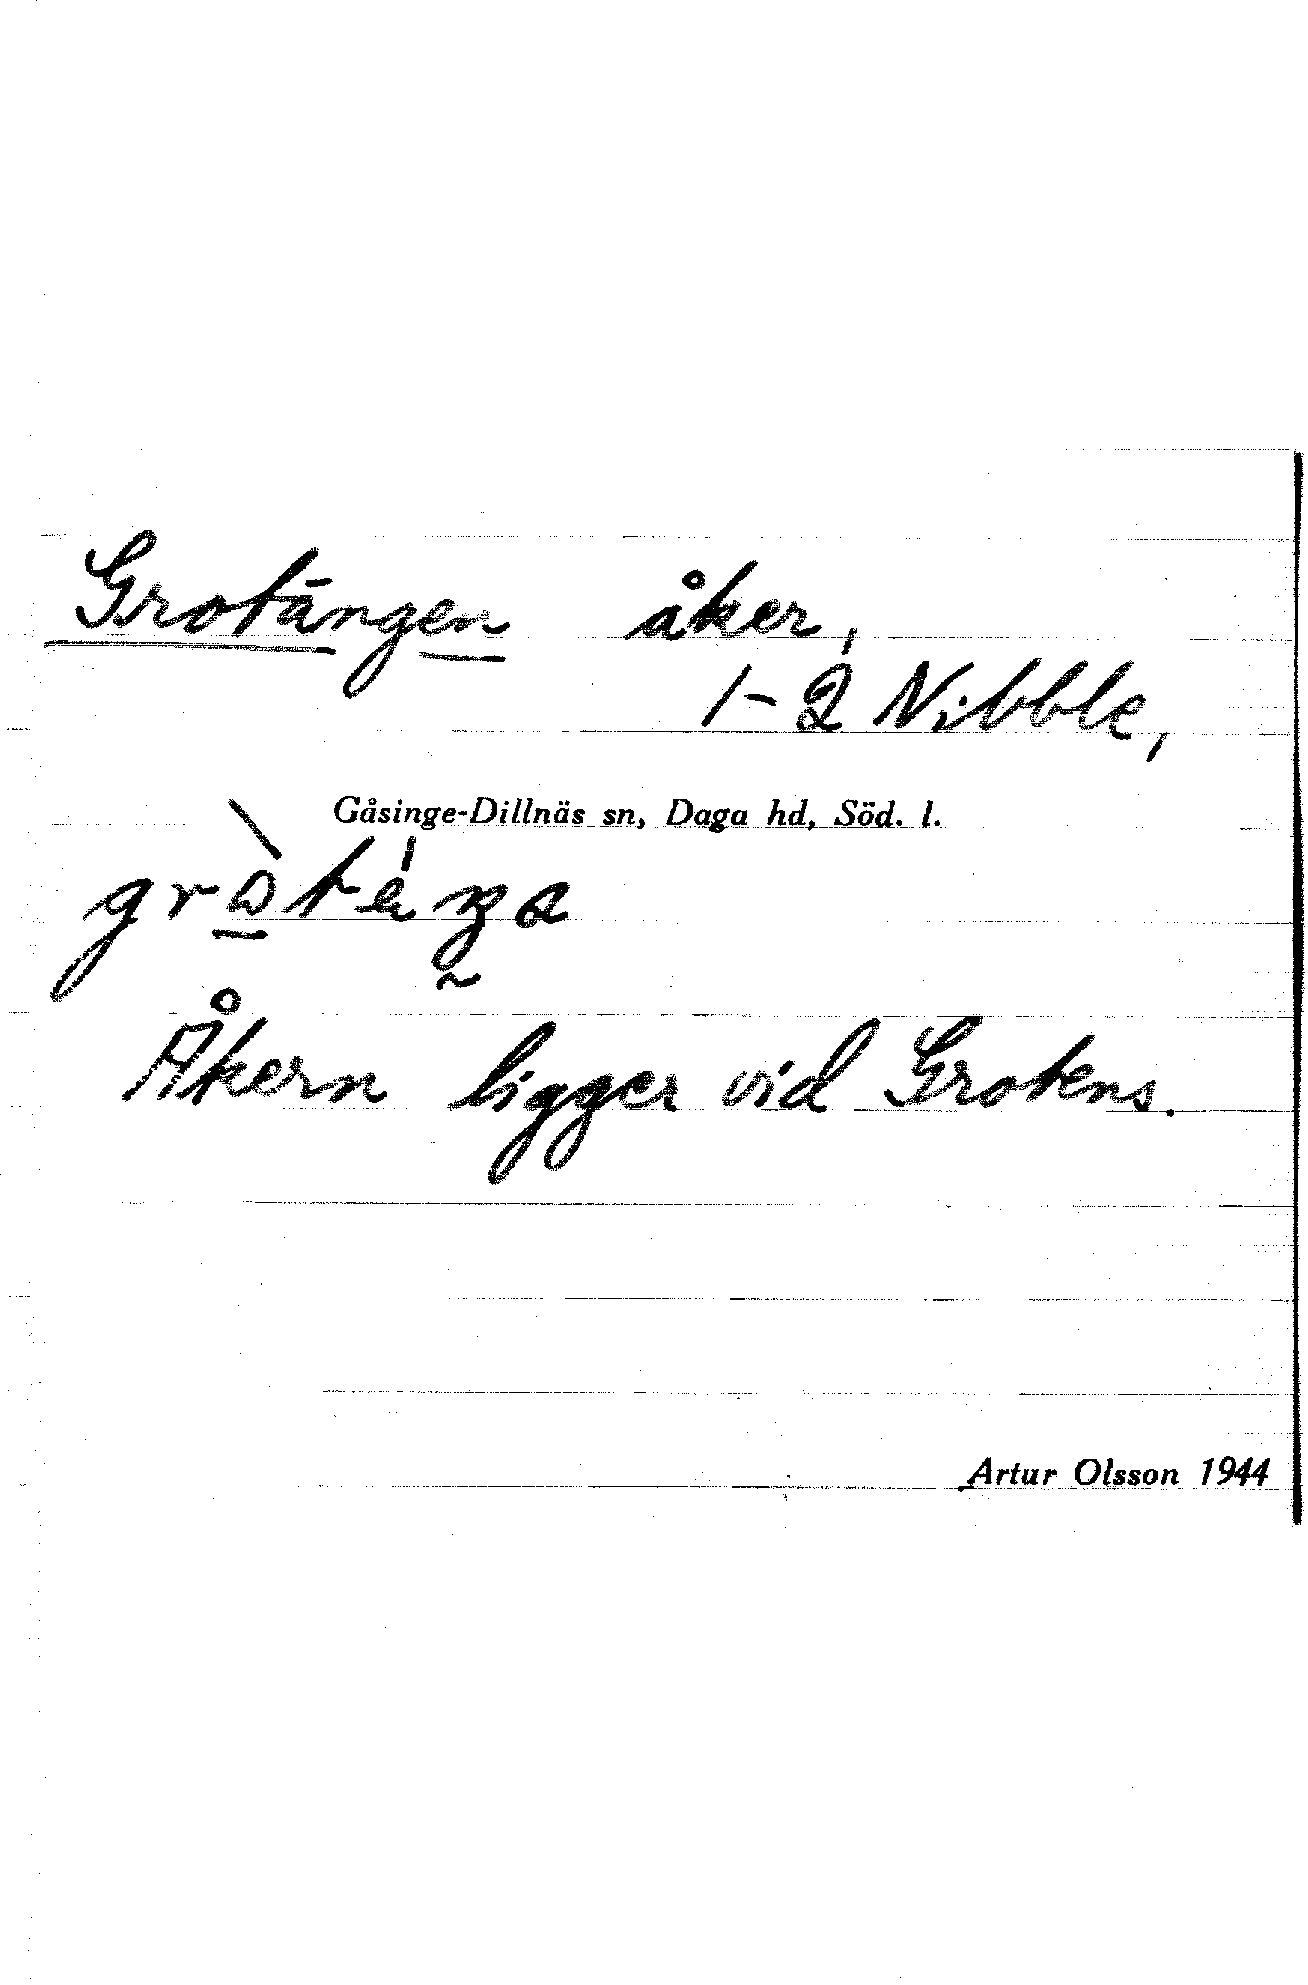 Grotängen åker,
1-2 Nibble,
Gåsinge-Dillnäs sn, Daga hd, Söd. l.
Åkern ligger vid Grotens.
Artur Olsson 1944